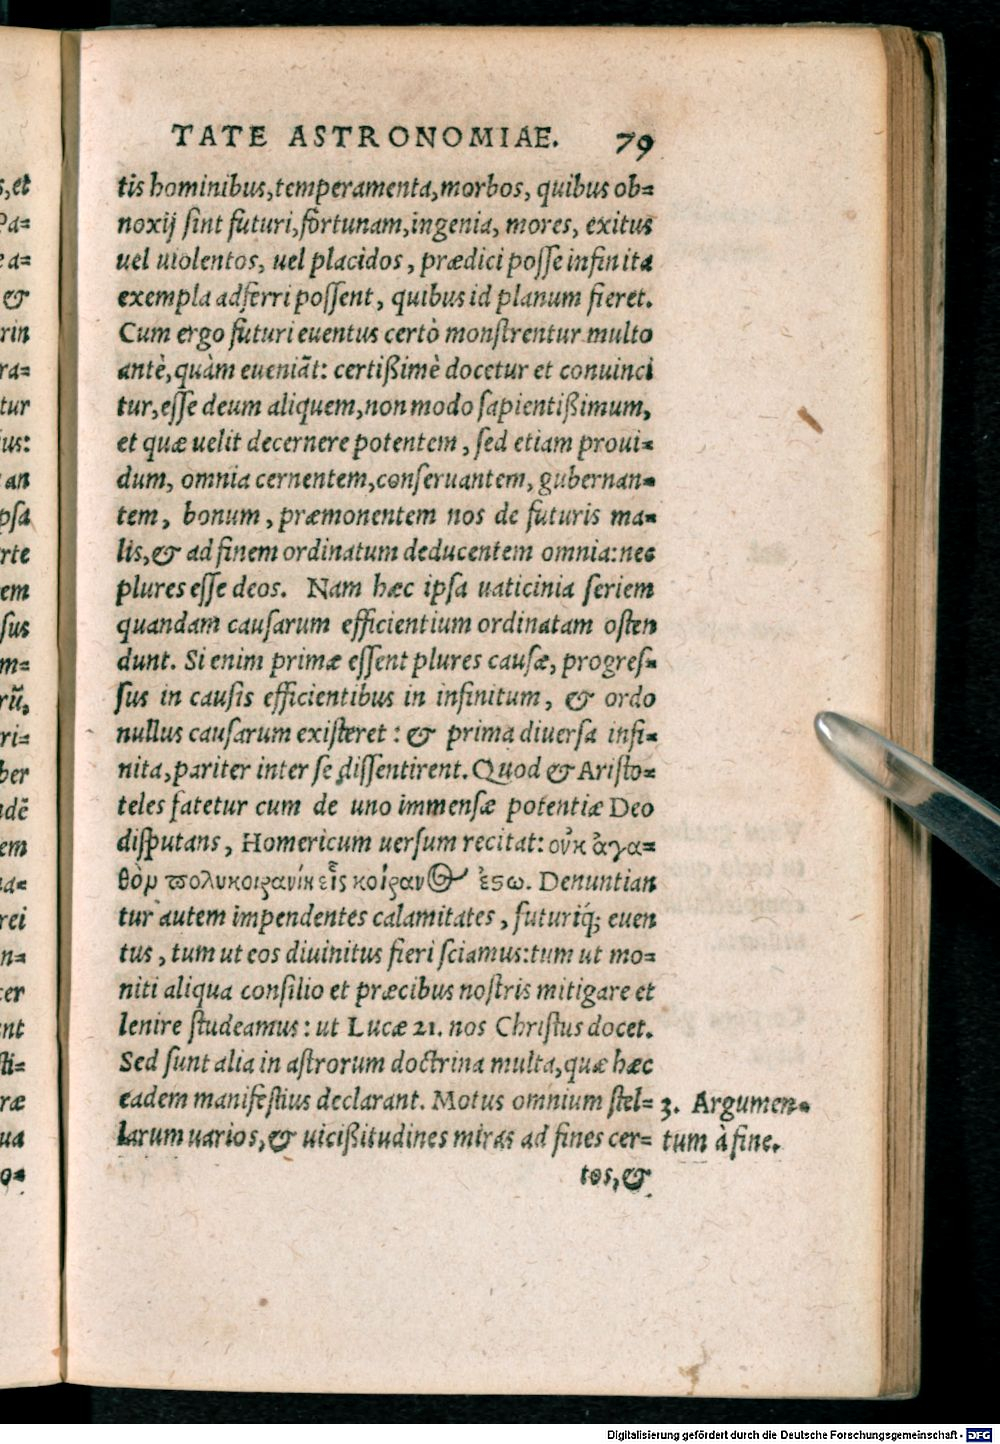 TATE ASTRONOMIAE. 79
tis hominibus, temperamenta, morbos, quibus ob=
noxij ſint futuri, fortunam, ingenia, mores, exitus
uel uiolentos, uel placidos, prædici poſſe infinita
exempla adferri poſſent, quibus id planum fieret.
Cum ergo futuri euentus certò monſtrentur multo
antè, quàm eueniãt: certißimè docetur et conuinci
tur, eſſe deum aliquem, non modo ſapientißimum,
et quæ uelit decernere potentem, ſed etiam proui=
dum, omnia cernentem, conſeruantem, gubernan=
tem, bonum, præmonentem nos de futuris ma=
lis, & ad finem ordinatum deducentem omnia: nec
plures eſſe deos. Nam hæc ipſa uaticinia ſeriem
quandam cauſarum efficientium ordinatam oſten
dunt. Si enim primæ eſſent plures cauſæ, progreſ=
ſus in cauſis efficientibus in infinitum, & ordo
nullus cauſarum exiſteret: & prima diuerſa infi=
nita, pariter inter ſe diſſentirent. Quod & Ariſto=
teles fatetur cum de uno immenſæ potentiæ Deo
diſputans, Homericum uerſum recitat: οὐκ ἀγα=
θὸν πολυκοιρανίη εἷς κοίρανος ἔστω. Denuntian
tur autem impendentes calamitates, futuriq́; euen
tus, tum ut eos diuinitus fieri ſciamus: tum ut mo=
niti aliqua conſilio et præcibus noſtris mitigare et
lenire ſtudeamus: ut Lucæ 21. nos Chriſtus docet.
Sed ſunt alia in aſtrorum doctrina multa, quæ hæc
eadem manifeſtius declarant. Motus omnium ſtel=
larum uarios, & uicißitudines miras ad fines cer=
tos, &
3. Argumen=
tum à fine.
s, et
Pa=
ea=
&
rin
ra=
tur
ius:
an
pſa
rte
em
ſus
m=
rũ,
ri=
ber
dẽ
em
ua=
rei
n=
cer
nt
ſti=
ræ
ua
o=
Digitalisierung gefördert durch die Deutsche Forschungsgemeinschaft - DFG